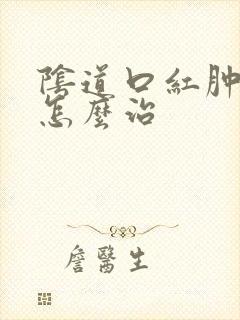 陰道口紅肿
怎麽治
詹醫生